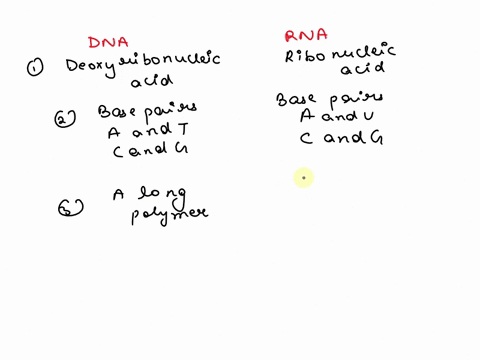 DNA RNA
① Deoxyribonucleic acid Ribonucleic acid
② Base pairs Base pairs
A and T A and U
C and G C and G
③ A long polymer